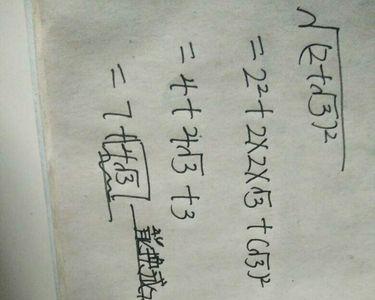 √(2+√3)²
=2²+2×2×√3+(√3)²
=4+4√3+3
=7+4√3